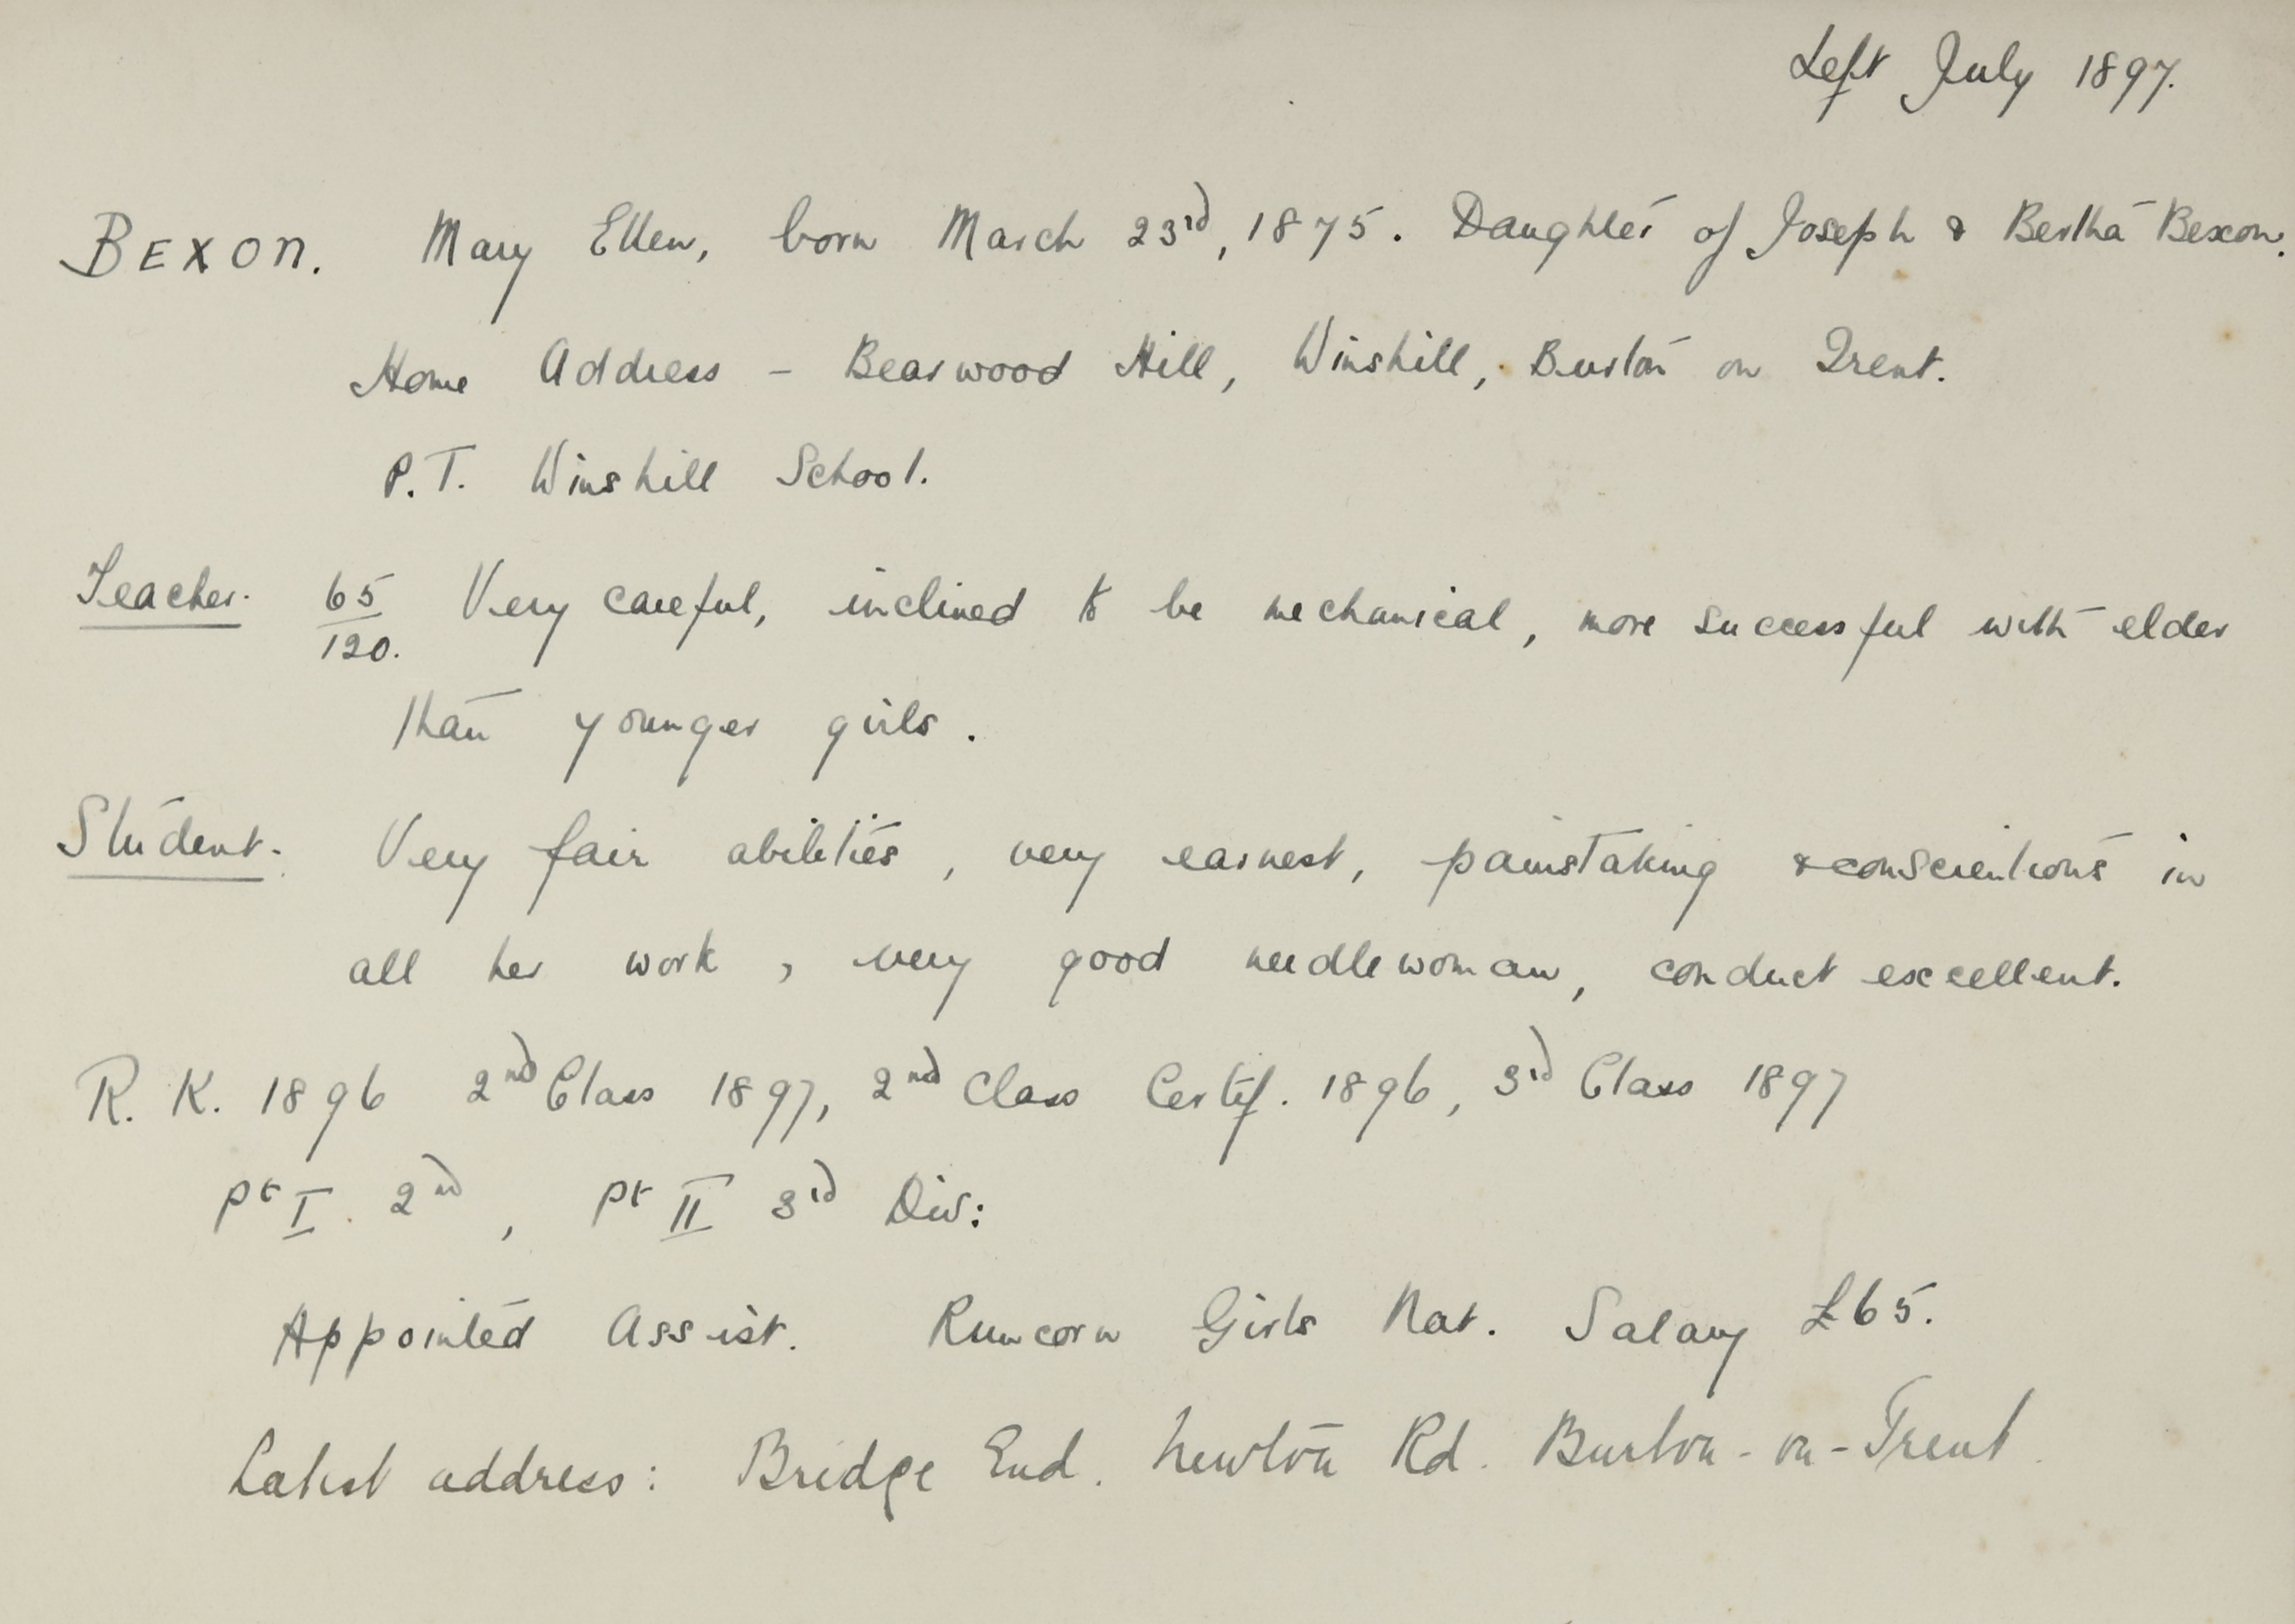 Left July 1897.
BEXON. Mary Ellen, born March 23rd, 1875. Daughter of Joseph & Bertha Bexon.
Home Address - Bearwood Hill, Winshill, Burton on Trent.
P.T. Winshill School.
Teacher. 65/120. Very careful, inclined to be mechanical, more successful with elder
than younger girls.
Student. Very fair abilities, very earnest, painstaking & conscientious in
all her work, very good needlewoman, conduct excellent.
R. K. 1896 2nd Class 1897, 2nd Class Certif. 1896, 3rd Class 1897
Pt I. 2nd, Pt II 3rd Div:
Appointed Assist. Runcorn Girls Nat. Salary £65.
Latest address: Bridge End. Newton Rd. Burton-on-Trent.